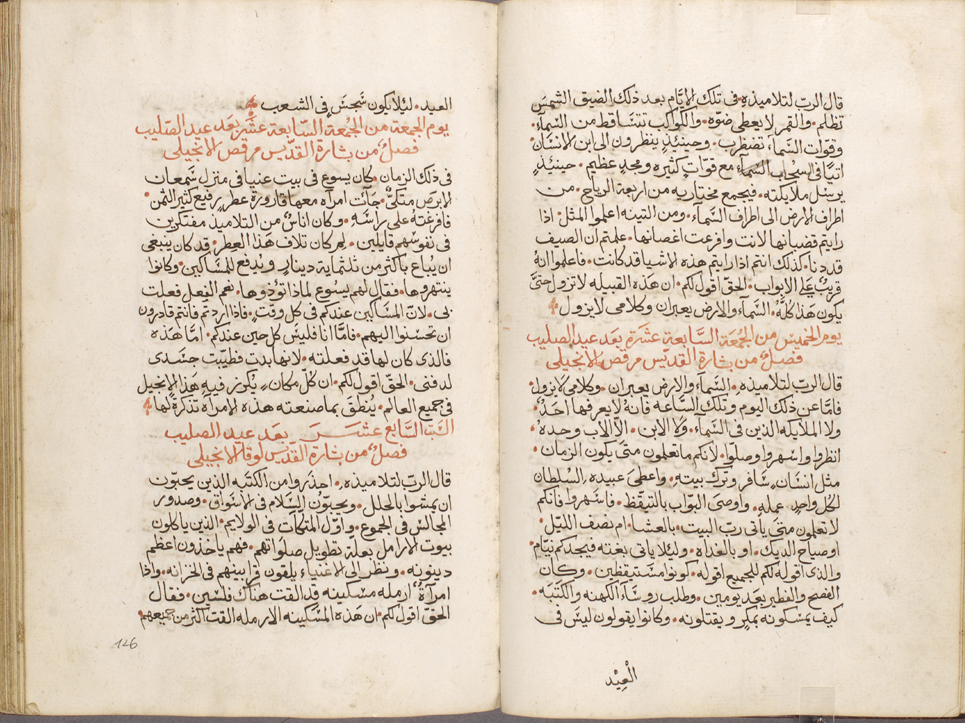 قال الرب لتلاميذه. في تلك الايام بعد ذلك الضيق الشمس
تظلم. والقمر لا يعطي ضوّه. والكواكب تتساقط من السمآء.
وقوات السمآء تضطرب. وحينيذٍ ينظرون الى ابن الانسان.
اتيًا في السحاب السمآء مع قوات كثيره ومجدٍ عظيم. حينيذٍ
يرسل ملايكته. فيجمع مختاريه من اربعة الرياح. من
اطراف الارض الى اطراف السمآء. ومن التينه اعلموا المثل. اذا
رايتم قضبانها لانت وافرعت اغصانها. علمتم ان الصيف
قد دنا. كذلك انتم اذا رايتم هذه الاشيا قد كانت. فاعلموا انهُ
قريبٌ على الابواب. الحق اقول لكم. ان هذه القبيله لا تزول حتى
يكون هذا كلّه. السمآء والارض يعبران وكلامي لا يزول
يوم الخميس من الجمعة السابعة عشرة بعد عيد الصليب
فصلٌ من بشارة القديس مرقص الانجيلي
قال الرب لتلاميذه. السمآء والارض يعبران. وكلامي لا يزول.
فامّا عن ذلك اليوم وتلك الساعه فانهُ لا يعرفها احدٌ.
ولا الملايكه الذين في السمآء. ولا الابن. الّا الاب وحده.
انظروا واسهروا وصلّوا. لانكم ما تعلمون متى يكون الزمان.
مثل انسان سافر وترك بيته. واعطى عبيده السلطان
لكل واحدٍ عمله. واوصى البوّاب بالتيقظ. فاسهروا فانكم
لا تعلمون متى ياتي رب البيت. بالعشا. ام نصف الليل.
او صياح الديك. او بالغداه. وليلا ياتي بغته فيجدكم نيام.
والذي اقوله لكم للجميع اقوله. كونوا مستيقظين. وكان
الفصح والفطير بعد يومين. وطلب روسآء الكهنه والكتبة.
كيف يمسكونه بمكرٍ ويقتلونه. وكانوا يقولون ليس في
العيد
العيد. ليلا يكون شجس في الشعب
يوم الجمعة من الجمعة السابعة عشر بعد عيد الصليب
فصلٌ من بشارة القديس مرقص الانجيلي
في ذلك الزمان. كان يسوع في بيت عنيا في منزل سمعان
الابرص متكيٌ. جآت امرآه معها قارورة عطرٍ رفيع كثير الثمن.
فافرغته على راسه. وكان اناسٌ من التلاميذ مفتكرين
في نفوسهم قايلين. لم كان تلاف هذا العطر. قد كان ينبغي
ان يباع باكثر من ثلثماية دينارٍ ويدفع للمساكين. وكانوا
ينتهروها. فقال لهم يسوع لماذا تؤذوها. نعم الفعل فعلت
بي. لانّ المساكين عندكم في كل وقتٍ. فاذا اردتم فانتم قادرون
ان تحسنوا اليهم. فامّا انا فليس كل حين عندكم. امّا هذه
فالذي كان لها قد فعلته. لانها بدت فطيبت جسدي
لدفنى. الحق اقول لكم. ان كلّ مكان يكرز فيه هذا الانجيل
في جميع العالم. يُنطق بما صنعته هذه الامرآه تذكرة لها
السبت السابع عشر بعد عيد الصليب
فصلٌ من بشارة القديس لوقا الانجيلي
قال الرب لتلاميذه. احذروا من الكتبه الذين يحبّون
ان يمشوا بالحلل. ويحبّون السلام في الاسواق. وصدور
المجالس في الجموع. واوّل المتكات في الولايم. الذين ياكلون
بيوت الارامل بعلة تطويل صلواتهم. فهم ياخذون اعظم
دينونه. ونظر الى الاغنياء يلقون قرابينهم في الخزانه. واذا
امرآة ارمله مسكينه قد القت هناك فلسين. فقال
الحق اقول لكم. ان هذه المسكينه الارمله القت اكثر من جميعهم.
126